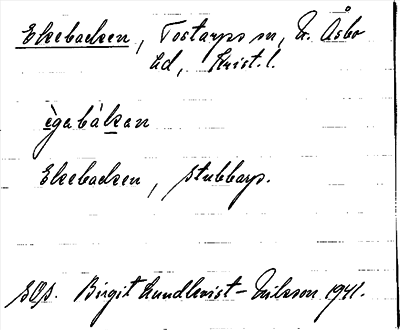 Ekebacken, Tostarps sn, N. Åsbo
hd, Krist. l.
ègabàkan
Ekebacken, Stubbarp.
SOp. Birgit Lundkvist-Eriksson 1941.